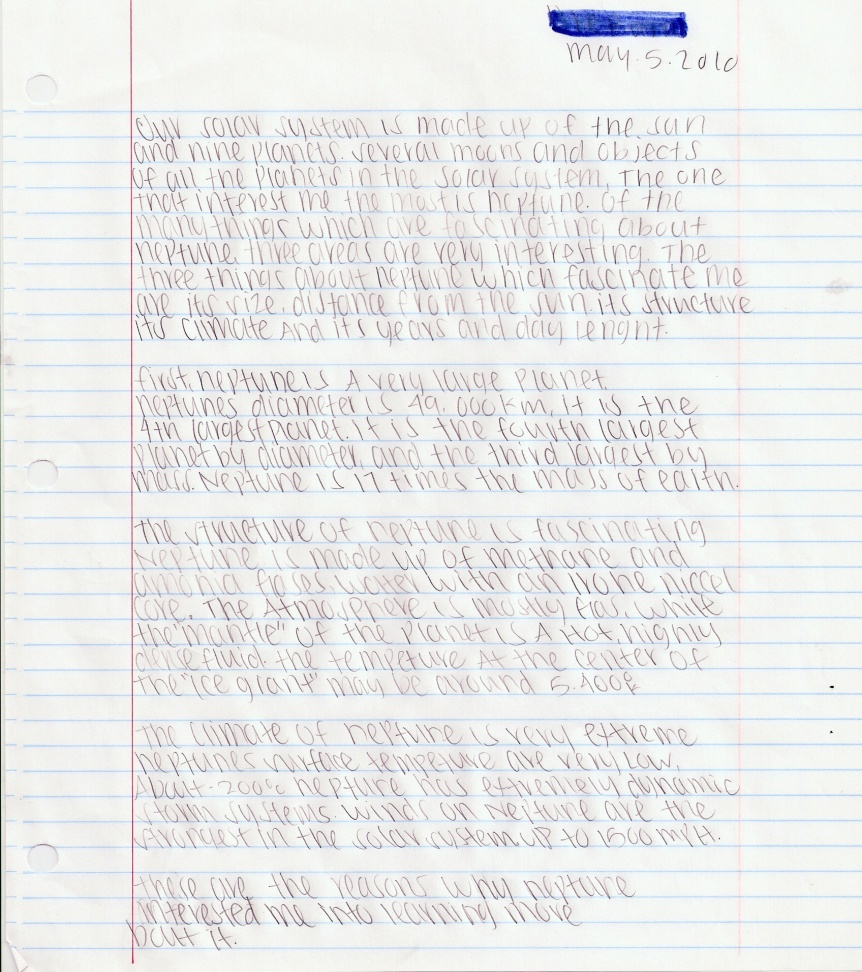 May. 5. 2010
Our solar system is made up of the sun
and nine planets. several moons and objects
of all the planets in the solar system, The one
that interest me the most is neptune. Of the
many things which are fascinating about
neptune, three areas are very interesting. The
three things about neptune which fascinate me
are its size, distance from the sun, its structure
its climate And its years and day lenght.
first, neptune is A very large planet.
neptunes diameter is 49.000km, it is the
4th largest planet. It is the fourth largest
planet by diameter, and the third largest by
mass. Neptune is 17 times the mass of earth.
the structure of neptune is fascinating
Neptune is made up of methane and
amonia gases, water with an irone niccel
core. The Atmosphere is mostly gas, while
the "mantle" of the planet is A Hot, highly
dense fluid. the tempeture At the center of
the "ice giant" may be around 5.400
the climate of neptune is very extreme
neptunes surface tempeture are very low.
About -200°c neptune has extremely dynamic
storm systems. winds on Neptune are the
strongest in the solar system up to 1500 mPH.
these are the reasons why neptune
interested me into learning more
boutt it.